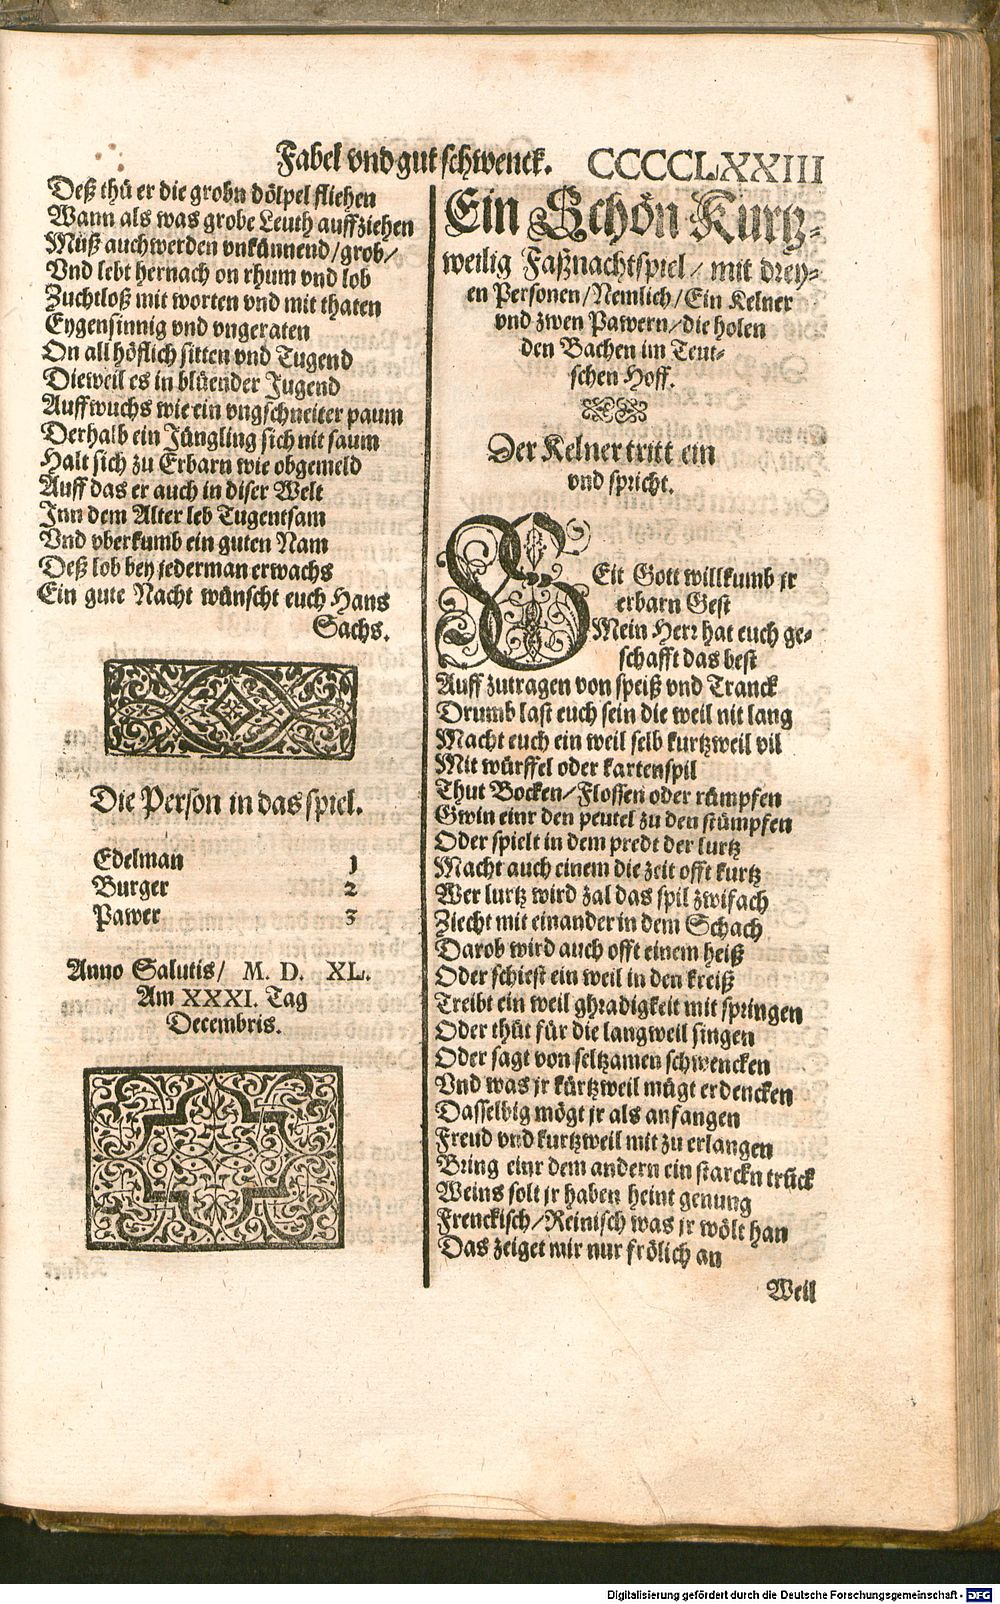 Fabel vnd gut schwenck. CCCCCLXXIII
Deß thů er die grobn dölpel fliehen
Wann als was grobe Leuth auffziehen
Můß auch werden vnkännend/grob/
Vnd lebt hernach on rhum vnd lob
Zuchtloß mit worten vnd mit thaten
Eygensinnig vnd vngeraten
On all höflich sitten vnd Tugend
Dieweil es in blüender Jugend
Auffwuchs wie ein vngschneiter paum
Derhalb ein Jüngling sich nit saum
Halt sich zu Erbarn wie obgemeld
Auff das er auch in diser Welt
Inn dem Alter leb Tugentsam
Vnd vberkumb ein guten Nam
Deß lob bey jederman erwachs
Ein gute Nacht wünscht euch Hans
Sachs.
Die Person in das spiel.
Edelman 1
Burger 2
Pawer 3
Anno Salutis/ M. D. XL.
Am XXXI. Tag
Decembris.
Ein Schön Kurtz-
weilig Faßnachtspiel/mit drey-
en Personen/Nemlich/Ein Kelner
vnd zwen Pawern/die holen
den Bachen im Teut-
schen Hoff.
Der Kelner tritt ein
vnd spricht.
SEit Gott willkumb jr
erbarn Gest
Mein Herr hat euch ge-
schafft das best
Auff zutragen von speiß vnd Tranck
Drumb last euch sein die weil nit lang
Macht euch ein weil selb kurtzweil vil
Mit würffel oder kartenspil
Thut Bocken/Flossen oder rämpfen
Gwin einr den peutel zu den stümpfen
Oder spielt in dem predt der lurtz
Macht auch einem die zeit offt kurtz
Wer lurtz wird zal das spil zwifach
Ziecht mit einander in dem Schach
Darob wird auch offt einem heiß
Oder schiest ein weil in den kreiß
Treibt ein weil ghradigkeit mit springen
Oder thůt für die langweil singen
Oder sagt von seltzamen schwencken
Vnd was jr kürtzweil mügt erdencken
Dasselbig mögt jr als anfangen
Freud vnd kurtzweil mit zu erlangen
Bring einr dem andern ein starckn trůck
Weins solt jr haben heint genung
Frenckisch/Reinisch was jr wölt han
Das zeiget mir nur frölich an
Weil
Digitalisierung gefördert durch die Deutsche Forschungsgemeinschaft - DFG